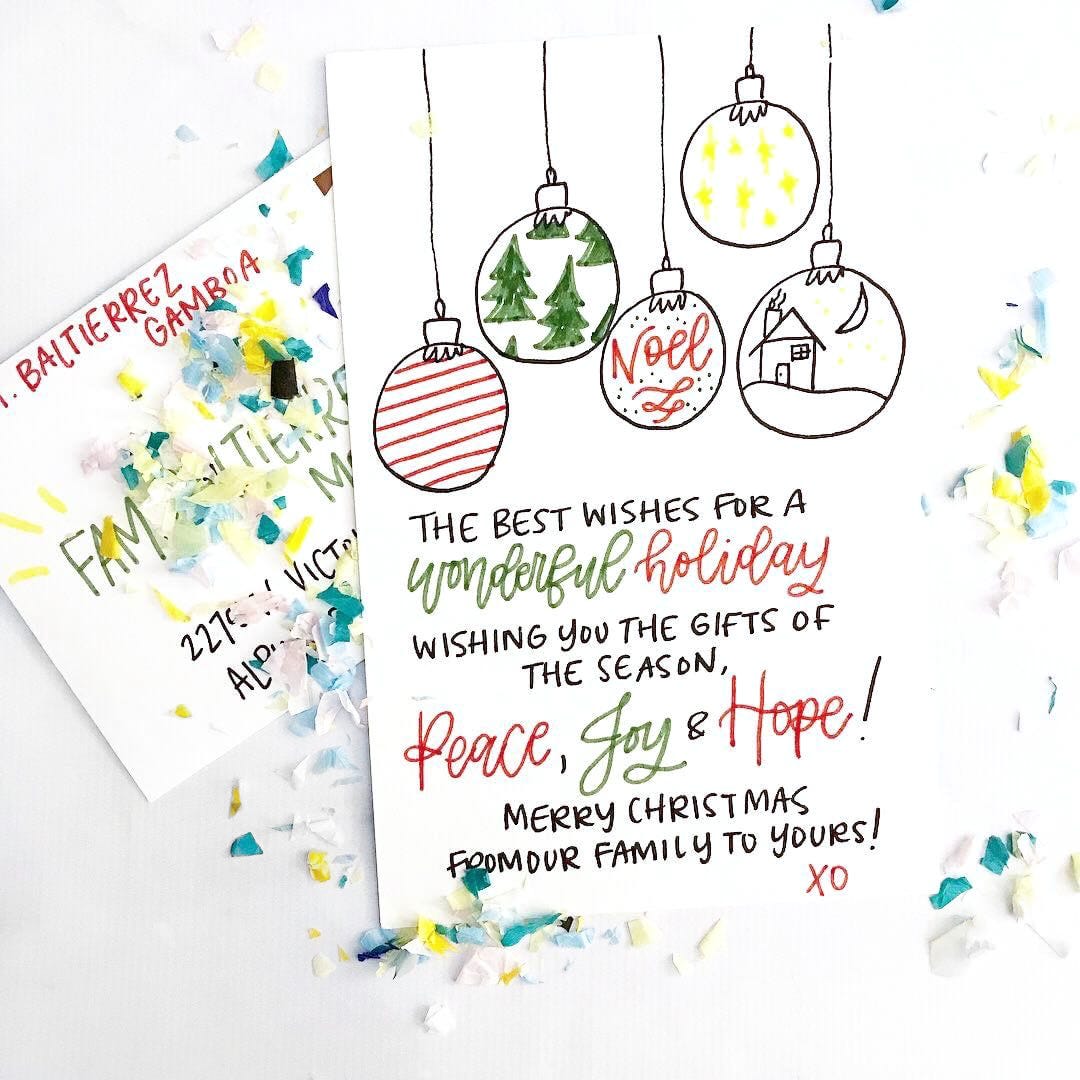 BALTIERREZ
GAMBOA
FAM
VICTO
Noel
THE BEST WISHES FOR A
wonderful holiday
WISHING YOU THE GIFTS OF
THE SEASON,
Peace, Joy & Hope!
MERRY CHRISTMAS
FROMOUR FAMILY TO YOURS!
XO